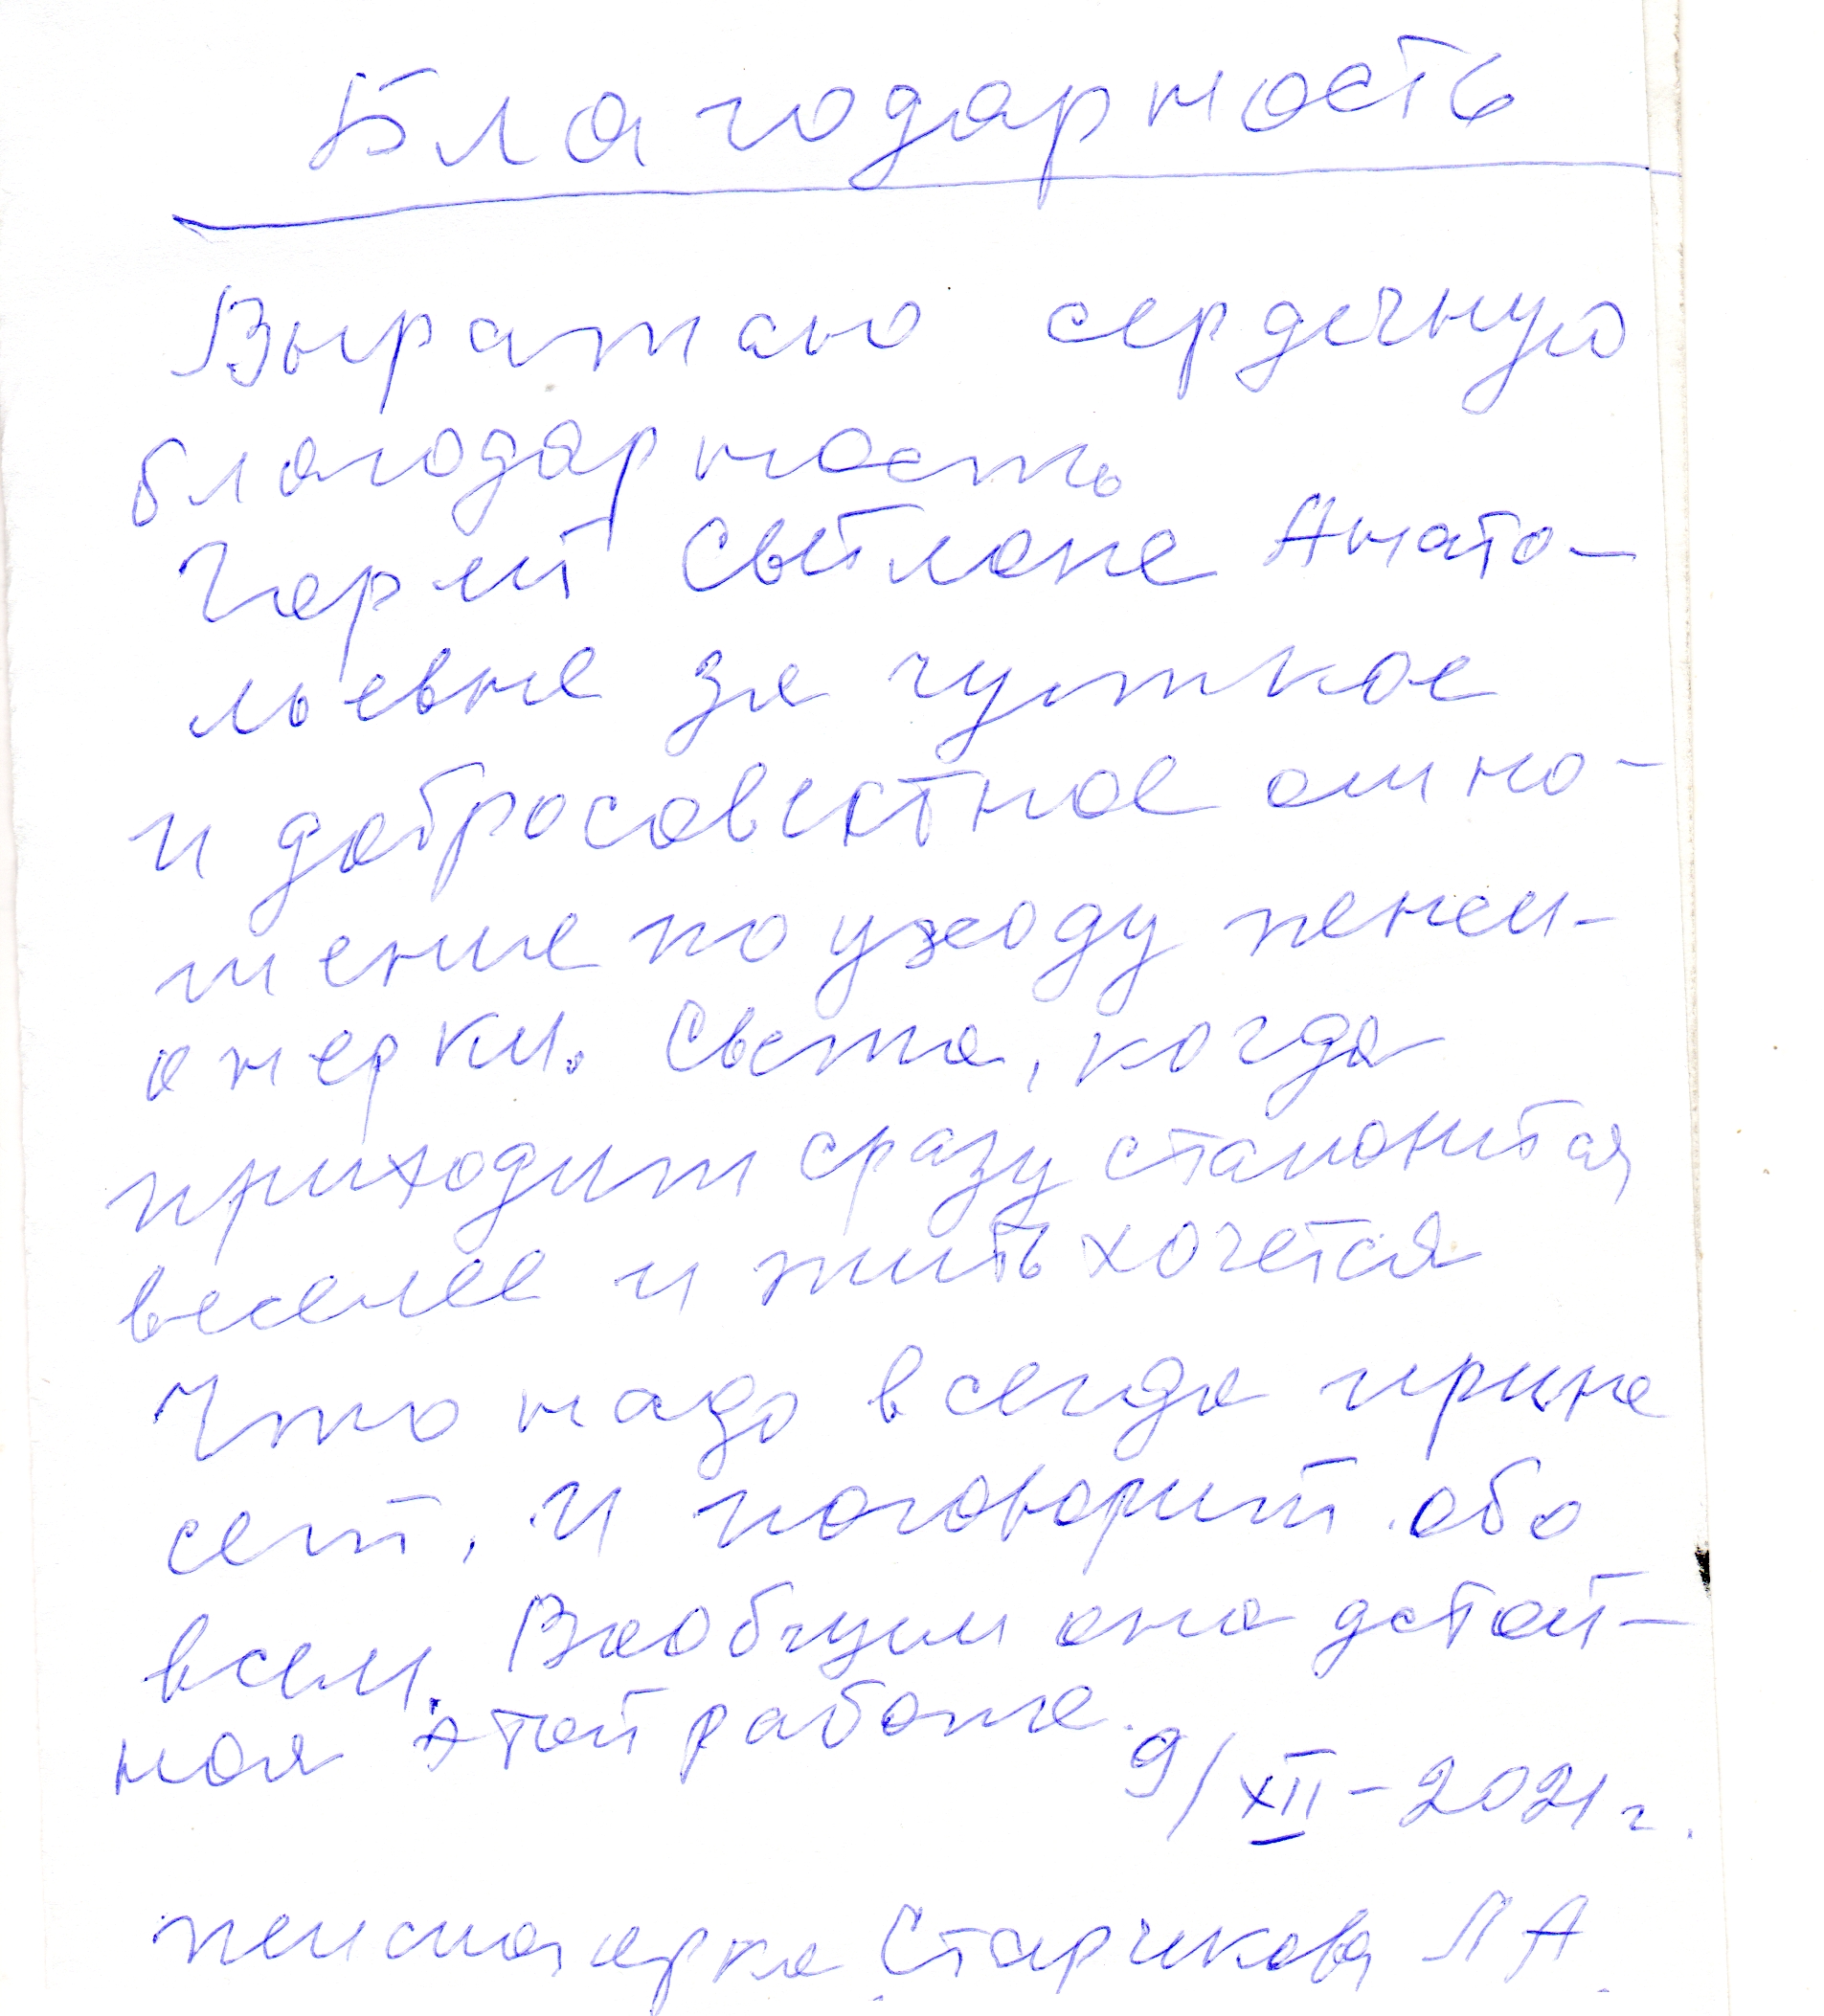 Благодарность
Выражаю сердечную
благодарность
Герит Светлане Анато-
льевне за чуткое
и добросовестное отно-
шение по уходу пенси-
онерки. Света, когда
приходит сразу становится
веселее и жить хочется
Что надо всегда прине
сет, и поговорит обо
всем.Ваобщим она дстой-
ная этой работе.
9/XII-2021г.
пенсионерка Старикова Л А